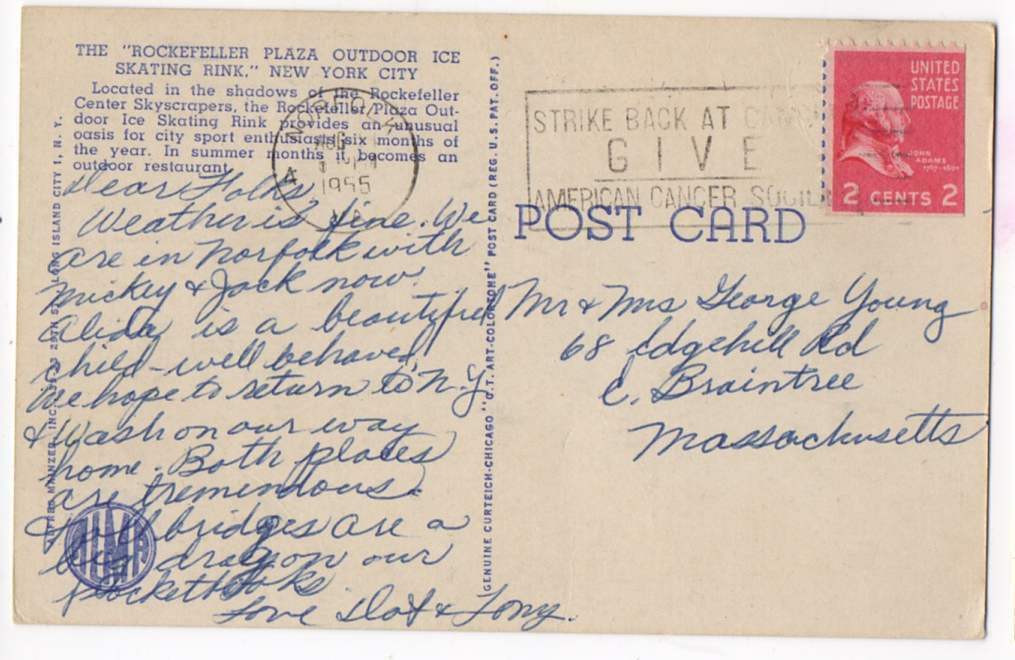 THE "ROCKEFELLER PLAZA OUTDOOR ICE
SKATING RINK," NEW YORK CITY
Located in the shadows of the Rockefeller
Center Skyscrapers, the Rockefeller Plaza Out-
door Ice Skating Rink provides an unusual
oasis for city sport enthusiasts six months of
the year. In summer months it becomes an
outdoor restaurant.
Dear Folks,
Weather is fine. We
are in Norfolk with
Mickey & Jack now.
Alida is a beautiful
child - well behaved.
We hope to return to N.Y.
& Wash on our way
home. Both places
are tremendous.
Toll bridges are a
big drag on our
pocketbooks
Love Dot & Tony.
LONG ISLAND CITY 1, N. Y.
GENUINE CURTEICH-CHICAGO "C.T. ART-COLORTONE" POST CARD (REG. U.S. PAT. OFF.)
NORFOLK
1955
STRIKE BACK AT CANCER
GIVE
AMERICAN CANCER SOCIETY
UNITED
STATES
POSTAGE
JOHN
ADAMS
2 CENTS 2
POST CARD
Mr & Mrs George Young
68 Edgehill Rd
E. Braintree
Massachusetts